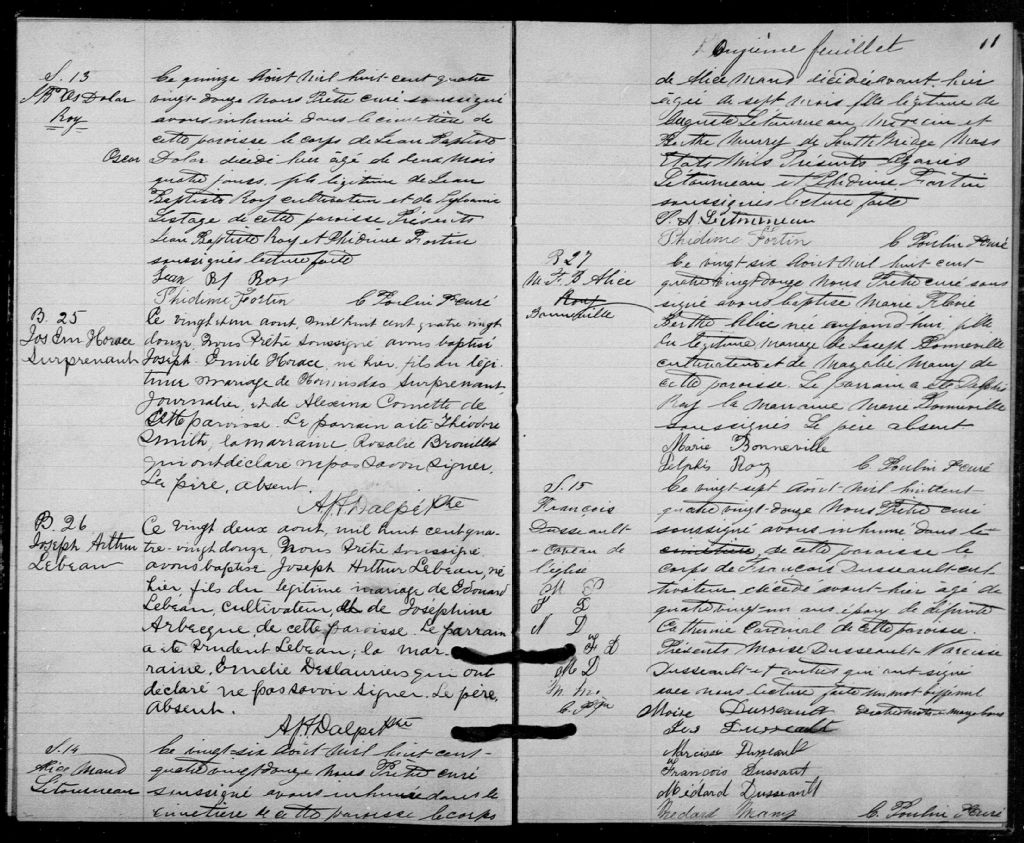 S. 13
J. Bte Os Dolar
Roy
Ce quinze Août Mil huit cent quatre
vingt-douze Nous Prêtre curé soussigné
avons inhumé dans le cimetière de
cette paroisse le corps de Jean Baptiste
Oscar Dolar décédé hier âgé de deux mois
quatre jours, fils légitime de Jean
Baptiste Roy cultivateur et de Sylvanie
Lestage de cette paroisse Présents
Jean Baptiste Roy et Phidime Fortin
soussignés lecture faite
Jean Bt Roy
Phidime Fortin C. Poulin Ptre curé
B. 25
Jos Em Horace
Surprenant
Ce vingt et un aout, mil huit cent quatre vingt
douze, Nous Prêtre Soussigné avons baptisé
Joseph Emile Horace, né hier, fils du légi-
time mariage de Hormisdas Surprenant
Journalier, et de Alexina Comette de
cette paroisse. Le parrain a été Théodore
Smith, la marraine, Rosalie Brouillet
qui ont déclaré ne pas savoir signer.
Le père, absent.
A. H. Dalpé Ptre
B. 26
Joseph Arthur
Lebeau
Ce vingt deux aout, mil huit cent qua-
tre-vingt douze, Nous Prêtre Soussigné
avons baptisé Joseph Arthur Lebeau, né
hier, fils du légitime mariage de Edouard
Lebeau, cultivateur, et de Joséphine
Arbecque, de cette paroisse. Le parrain
a été Prudent Lebeau; la mar-
raine, Emelie Deslauriers qui ont
déclaré ne pas savoir signer. Le père,
absent.
A. H. Dalpé Ptre
S. 14
Alice Maud
Letourneau
Ce vingt-six Août Mil huit cent-
quatre vingt douze Nous Prêtre curé
soussigné avons inhumé dans le
cimetière de cette paroisse le corps
Onzième feuillet 11
de Alice Maud décédée avant hier
âgée de sept mois fille légitime de
Auguste Letourneau, Médecin et
Berthe Murry de South Bridge Mass
Etats Unis Présents
Letourneau et Phidime Fortin
soussignés lecture faite
S. A Letourneau
Phidime Fortin C Poulin Ptre curé
B 27
M. F. B Alice
Roy
Bonneville
Ce vingt-six Août Mil huit cent-
quatre vingt douze Nous Prêtre curé sous
signé avons baptisé Marie Flore
Berthe Alice née aujourd'hui, fille
du légitime mariage de Joseph Bonneville
cultivateur et de Mazalie Mamy de
cette paroisse. Le parrain a été Delphis
Roy la marraine Marie Bonneville
soussignés Le père absent
Marie Bonneville
Delphis Roy C. Poulin Ptre curé
S. 15
François
Dusseault
caveau de
l'église
M D
J D
N D
F D
M D
M. M.
C. P. Ptre
Ce vingt-sept Août Mil huit cent
quatre vingt-douze Nous Prêtre curé
soussigné avons inhumé dans le
cimetière, de cette paroisse le
corps de François Dusseault cul-
tivateur décédé avant-hier âgé de
quatre vingt-un ans, époux de défunte
Catherine Cardinal de cette paroisse.
Présents, Moise Dusseault Narcisse
Dusseault et autres qui ont signé
avec nous lecture faite un mot biffé nul
Moise Dusseault
Jos Dusseault
Narcisse Dusseault
François Dussaut
Médard Dusseault
Medard Mamy C. Poulin Ptre curé